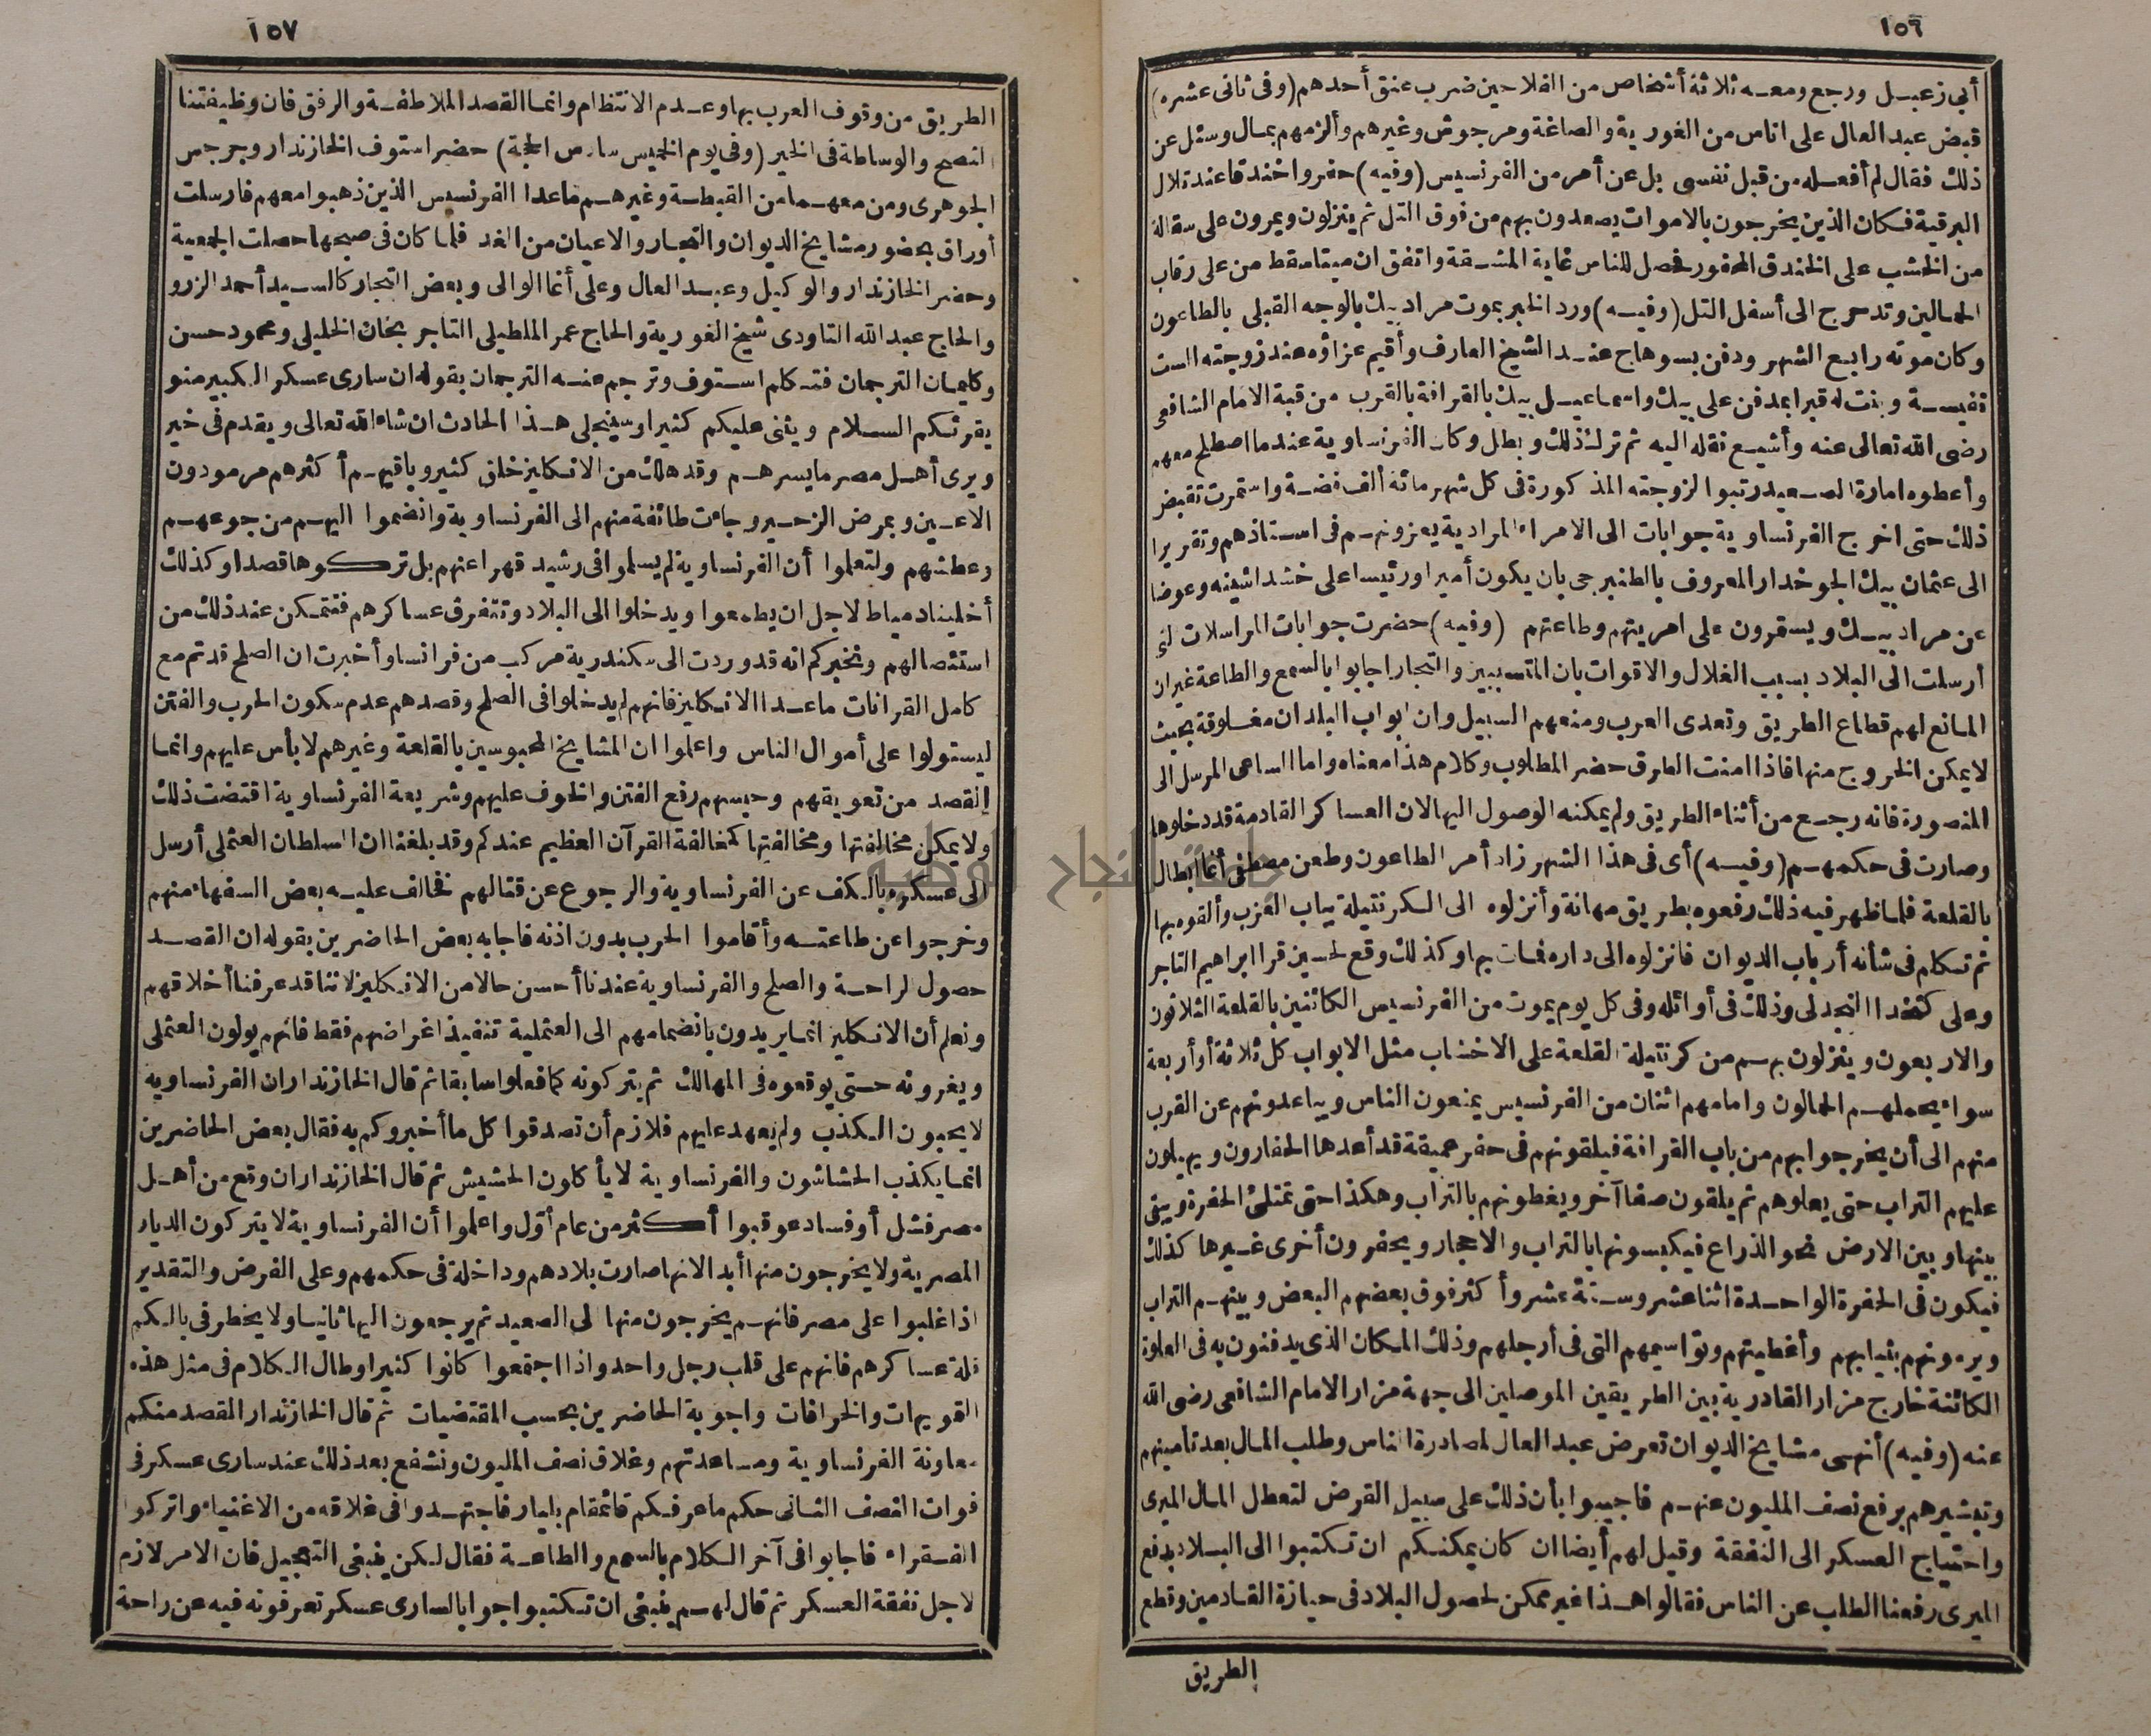 ١٥٦
أبي زعبل ورجع ومعه ثلاثة أشخاص من الفلاحين ضرب عنق أحدهم (وفى ثانى عشره)
قبض عبد العال على اناس من الغورية والصاغة ومرجوش وغيرهم وألزمهم بمال وسئل عن
ذلك فقال لم أفعله من قبل نفسى بل عن أمر من الفرنسيس (وفيه) حفروا خندقا عند تلال
البرقية فكان الذين يخرجون بالاموات يصعدون بهم من فوق التل ثم ينزلون ويمرون على سقالة
من الخشب على الخندق المحفور فحصل للناس غاية المشقة واتفق ان ميتا سقط من على رقاب
الحمالين وتدحرج الى أسفل التل (وفيه) ورد الخبر بموت مراد بيك بالوجه القبلى بالطاعون
وكان موته رابع الشهر ودفن بسوهاج عند الشيخ العارف وأقيم عزاؤه عند زوجته الست
نفيسة وبنت له قبرا بمدفن على بيك واسماعيل بيك بالقرافة بالقرب من قبة الامام الشافعى
رضى الله تعالى عنه وأشيع نقله اليه ثم ترك ذلك وبطل وكان الفرنساوية عندما اصطلح معهم
وأعطوه امارة الصعيد رتبوا لزوجته المذكورة فى كل شهر مائة ألف فضة واستمرت تقبض
ذلك حتى اخرج الفرنساوية جوابات الى الامراء المرادية يعزونهم فى استاذهم وتقريرا
الى عثمان بيك الجوخدار المعروف بالطنبرجى بان يكون أميرا ورئيسا على خشداشينه وعوضا
عن مراد بيك ويستمرون على امريتهم وطاعتهم (وفيه) حضرت جوابات المراسلات التى
أرسلت الى البلاد بسبب الغلال والاقوات بان المتسببين والتجار اجابوا بالسمع والطاعة غير ان
المانع لهم قطاع الطريق وتعدى العرب ومنعهم السبيل وان ابواب البلدان مغلوقة بحيث
لا يمكن الخروج منها فاذا امنت الطرق حضر المطلوب وكلام هذا معناه واما الساعى المرسل الى
المنصورة فانه رجع من أثناء الطريق ولم يمكنه الوصول اليها لان العساكر القادمة قد دخلوها
وصارت فى حكمهم (وفيه) أى فى هذا الشهر زاد أمر الطاعون وطعن مصطفى أغا ابطال
بالقلعة فلما ظهر فيه ذلك رفعوه بطريق مهانة وأنزلوه الى الكرنتيلة بباب العزب وألقوه بها
ثم تكلم فى شأنه أرباب الديوان فانزلوه الى داره فمات بها وكذلك وقع لحسين قرا ابراهيم التاجر
وعلى كتخدا النجدلى وذلك فى أوائله وفى كل يوم يموت من الفرنسيس الكائنين بالقلعة الثلاثون
والاربعون وينزلون بهم من كرنتيلة القلعة على الاخشاب مثل الابواب كل ثلاثة أو أربعة
سواء يحملهم الحمالون وامامهم اثنان من الفرنسيس يمنعون الناس ويباعدونهم عن القرب
منهم الى أن يخرجوا بهم من باب القرافة فيلقونهم فى حفر عميقة قد أعدها الحفارون ويهيلون
عليهم التراب حتى يعلوهم ثم يلقون صفا آخر ويغطونهم بالتراب وهكذا حتى تمتلئ الحفرة ويبقى
بينها وبين الارض نحو الذراع فيكبسونها بالتراب والاحجار ويحفرون أخرى غيرها كذلك
فيكون فى الحفرة الواحدة اثنا عشر وستة عشر وأكثر فوق بعضهم البعض وبينهم التراب
ويرمونهم بثيابهم وأغطيتهم وتواسيمهم التى فى أرجلهم وذلك المكان الذى يدفنون به فى العلوة
الكائنة خارج مزار القادرية بين الطريقين الموصلين الى جهة مزار الامام الشافعى رضى الله
عنه (وفيه) أنهى مشايخ الديوان تعرض عبد العال لمصادرة الناس وطلب المال بعد تأمينهم
وتبشيرهم برفع نصف المليون عنهم فاجيبوا بأن ذلك على سبيل القرض لتعطل المال الميرى
واحتياج العسكر الى النفقة وقيل لهم أيضا ان كان يمكنكم ان تكتبوا الى البلاد بدفع
الميرى رفعنا الطلب عن الناس فقالوا هذا غير ممكن لحصول البلاد فى حيازة القادمين وقطع
الطريق
١٥٧
الطريق من وقوف العرب بها وعدم الانتظام وانما القصد الملاطفة والرفق فان وظيفتنا
النصح والوساطة فى الخير (وفى يوم الخميس سادس الحجة) حضر استوف الخازندار وجرجس
الجوهرى ومن معهما من القبطة وغيرهم ما عدا الفرنسيس الذين ذهبوا معهم فارسلت
أوراق بحضور مشايخ الديوان والتجار والاعيان من الغد فلما كان فى صبحها حصلت الجمعية
وحضر الخازندار والوكيل وعبد العال وعلى أغا الوالى وبعض التجار كالسيد أحمد الزرو
والحاج عبد الله التاودى شيخ الغورية والحاج عمر الملطيلى التاجر بخان الخليلى ومحمود حسن
وكليمان الترجمان فتكلم استوف وترجم عنه الترجمان بقوله ان سارى عسكر الكبير منو
يقرئكم السلام ويثنى عليكم كثيرا وسينجلى هذا الحادث ان شاء الله تعالى ويقدم فى خير
ويرى أهل مصر ما يسرهم وقد هلك من الانكليز خلق كثير وباقيهم أكثرهم مرمودون
الاعين وبمرض الزحير وجاءت طائفة منهم الى الفرنساوية وانضموا اليهم من جوعهم
وعطشهم ولتعلموا أن الفرنساوية لم يسلموا فى رشيد قهرا عنهم بل تركوها قصدا وكذلك
أخلينا دمياط لاجل ان يطمعوا ويدخلوا الى البلاد وتتفرق عساكرهم فنتمكن عند ذلك من
استئصالهم ونخبركم انه قد وردت الى سكندرية مركب من فرانسا وأخبرت ان الصلح قد تم مع
كامل القرانات ما عدا الانكليز فانهم لم يدخلوا فى الصلح وقصدهم عدم سكون الحرب والفتن
ليستولوا على أموال الناس واعلموا ان المشايخ المحبوسين بالقلعة وغيرهم لا بأس عليهم وانما
القصد من تعويقهم وحبسهم رفع الفتن والخوف عليهم وشريعة الفرنساوية اقتضت ذلك
ولا يمكن مخالفتها ومخالفتها كمخالفة القرآن العظيم عندكم وقد بلغنا ان السلطان العثملى أرسل
الى عسكره بالكف عن الفرنساوية والرجوع عن قتالهم فخالف عليه بعض السفهاء منهم
وخرجوا عن طاعته وأقاموا الحرب بدون اذنه فاجابه بعض الحاضرين بقوله ان القصد
حصول الراحة والصلح والفرنساوية عندنا أحسن حالا من الانكليز لاننا قد عرفنا أخلاقهم
ونعلم أن الانكليز انما يريدون بانضمامهم الى العثملية تنفيذ اغراضهم فقط فانهم يولون العثملى
ويغرونه حتى يوقعوه فى المهالك ثم يتركونه كما فعلوا سابقا ثم قال الخازندار ان الفرنساوية
لا يحبون الكذب ولم يعهد عليهم فلازم أن تصدقوا كل ما أخبروكم به فقال بعض الحاضرين
انما يكذب الحشاشون والفرنساوية لا يأكلون الحشيش ثم قال الخازندار ان وقع من أهل
مصر فشل أو فساد عوقبوا أكثر من عام أول واعلموا أن الفرنساوية لا يتركون الديار
المصرية ولا يخرجون منها أبدا لانها صارت بلادهم وداخلة فى حكمهم وعلى الفرض والتقدير
اذا غلبوا على مصر فانهم يخرجون منها الى الصعيد ثم يرجعون اليها ثانيا ولا يخطر فى بالكم
قلة عساكرهم فانهم على قلب رجل واحد واذا اجتمعوا كانوا كثيرا وطال الكلام فى مثل هذه
التمويهات والخرافات واجوبة الحاضرين بحسب المقتضيات ثم قال الخازندار القصد منكم
معاونة الفرنساوية ومساعدتهم وغلاق نصف المليون ونشفع بعد ذلك عند سارى عسكر فى
فوات النصف الثانى حكم ما عرفكم قائمقام بليار فاجتهدوا فى غلاقه من الاغنياء واتركوا
الفقراء فاجابوا فى آخر الكلام بالسمع والطاعة فقال لكن ينبغى التعجيل فان الامر لازم
لاجل نفقة العسكر ثم قال لهم ينبغى ان تكتبوا جوابا لسارى عسكر تعرفونه فيه عن راحة
جامعة النجاح الوطنية